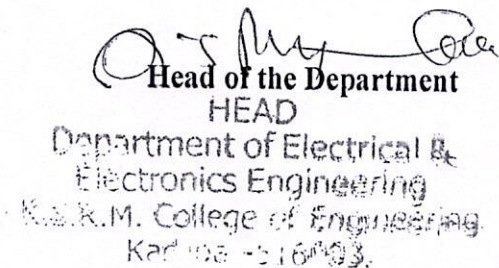 Head of the Department
HEAD
Department of Electrical &
Electronics Engineering
K.S.R.M. College of Engineering